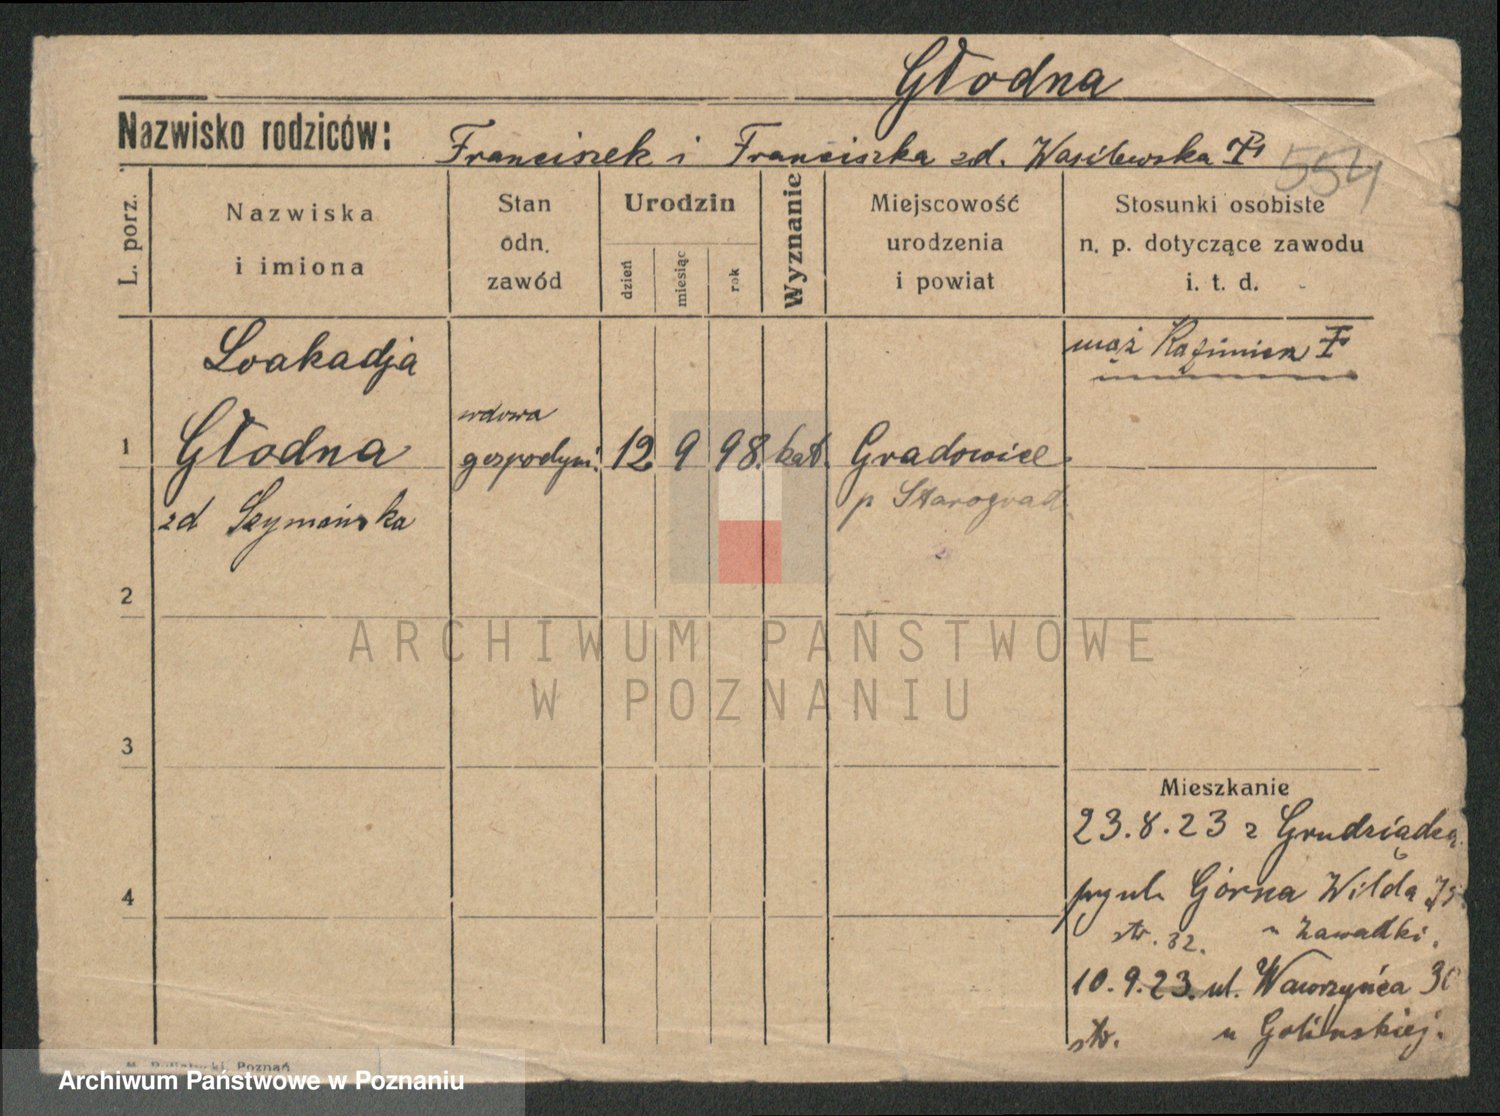 Głodna
Nazwisko rodziców: Franciszek i Franciszka zd. Wasilewska
554
L. porz.
Nazwiska
i imiona
Stan
odn.
zawód
Urodzin
dzień
miesiąc
rok
Wyznanie
Miejscowość
urodzenia
i powiat
Stosunki osobiste
n. p. dotyczące zawodu
i. t. d.
Loakadja
mąż Kazimierz
wdowa
1 Głodna gospodyni. 12 9 98. kat. Gradowice
p Starograd
zd Szymańska
2
ARCHIWUM PAŃSTWOWE
W POZNANIU
3
Mieszkanie
23.8.23 z Grudziądza
4
przy ul. Górna Wilda
str. 32. u Zawadki.
10.9.23. ul. Wawrzyńca
str. u Golinskiej.
Poznań
Archiwum Państwowe w Poznaniu